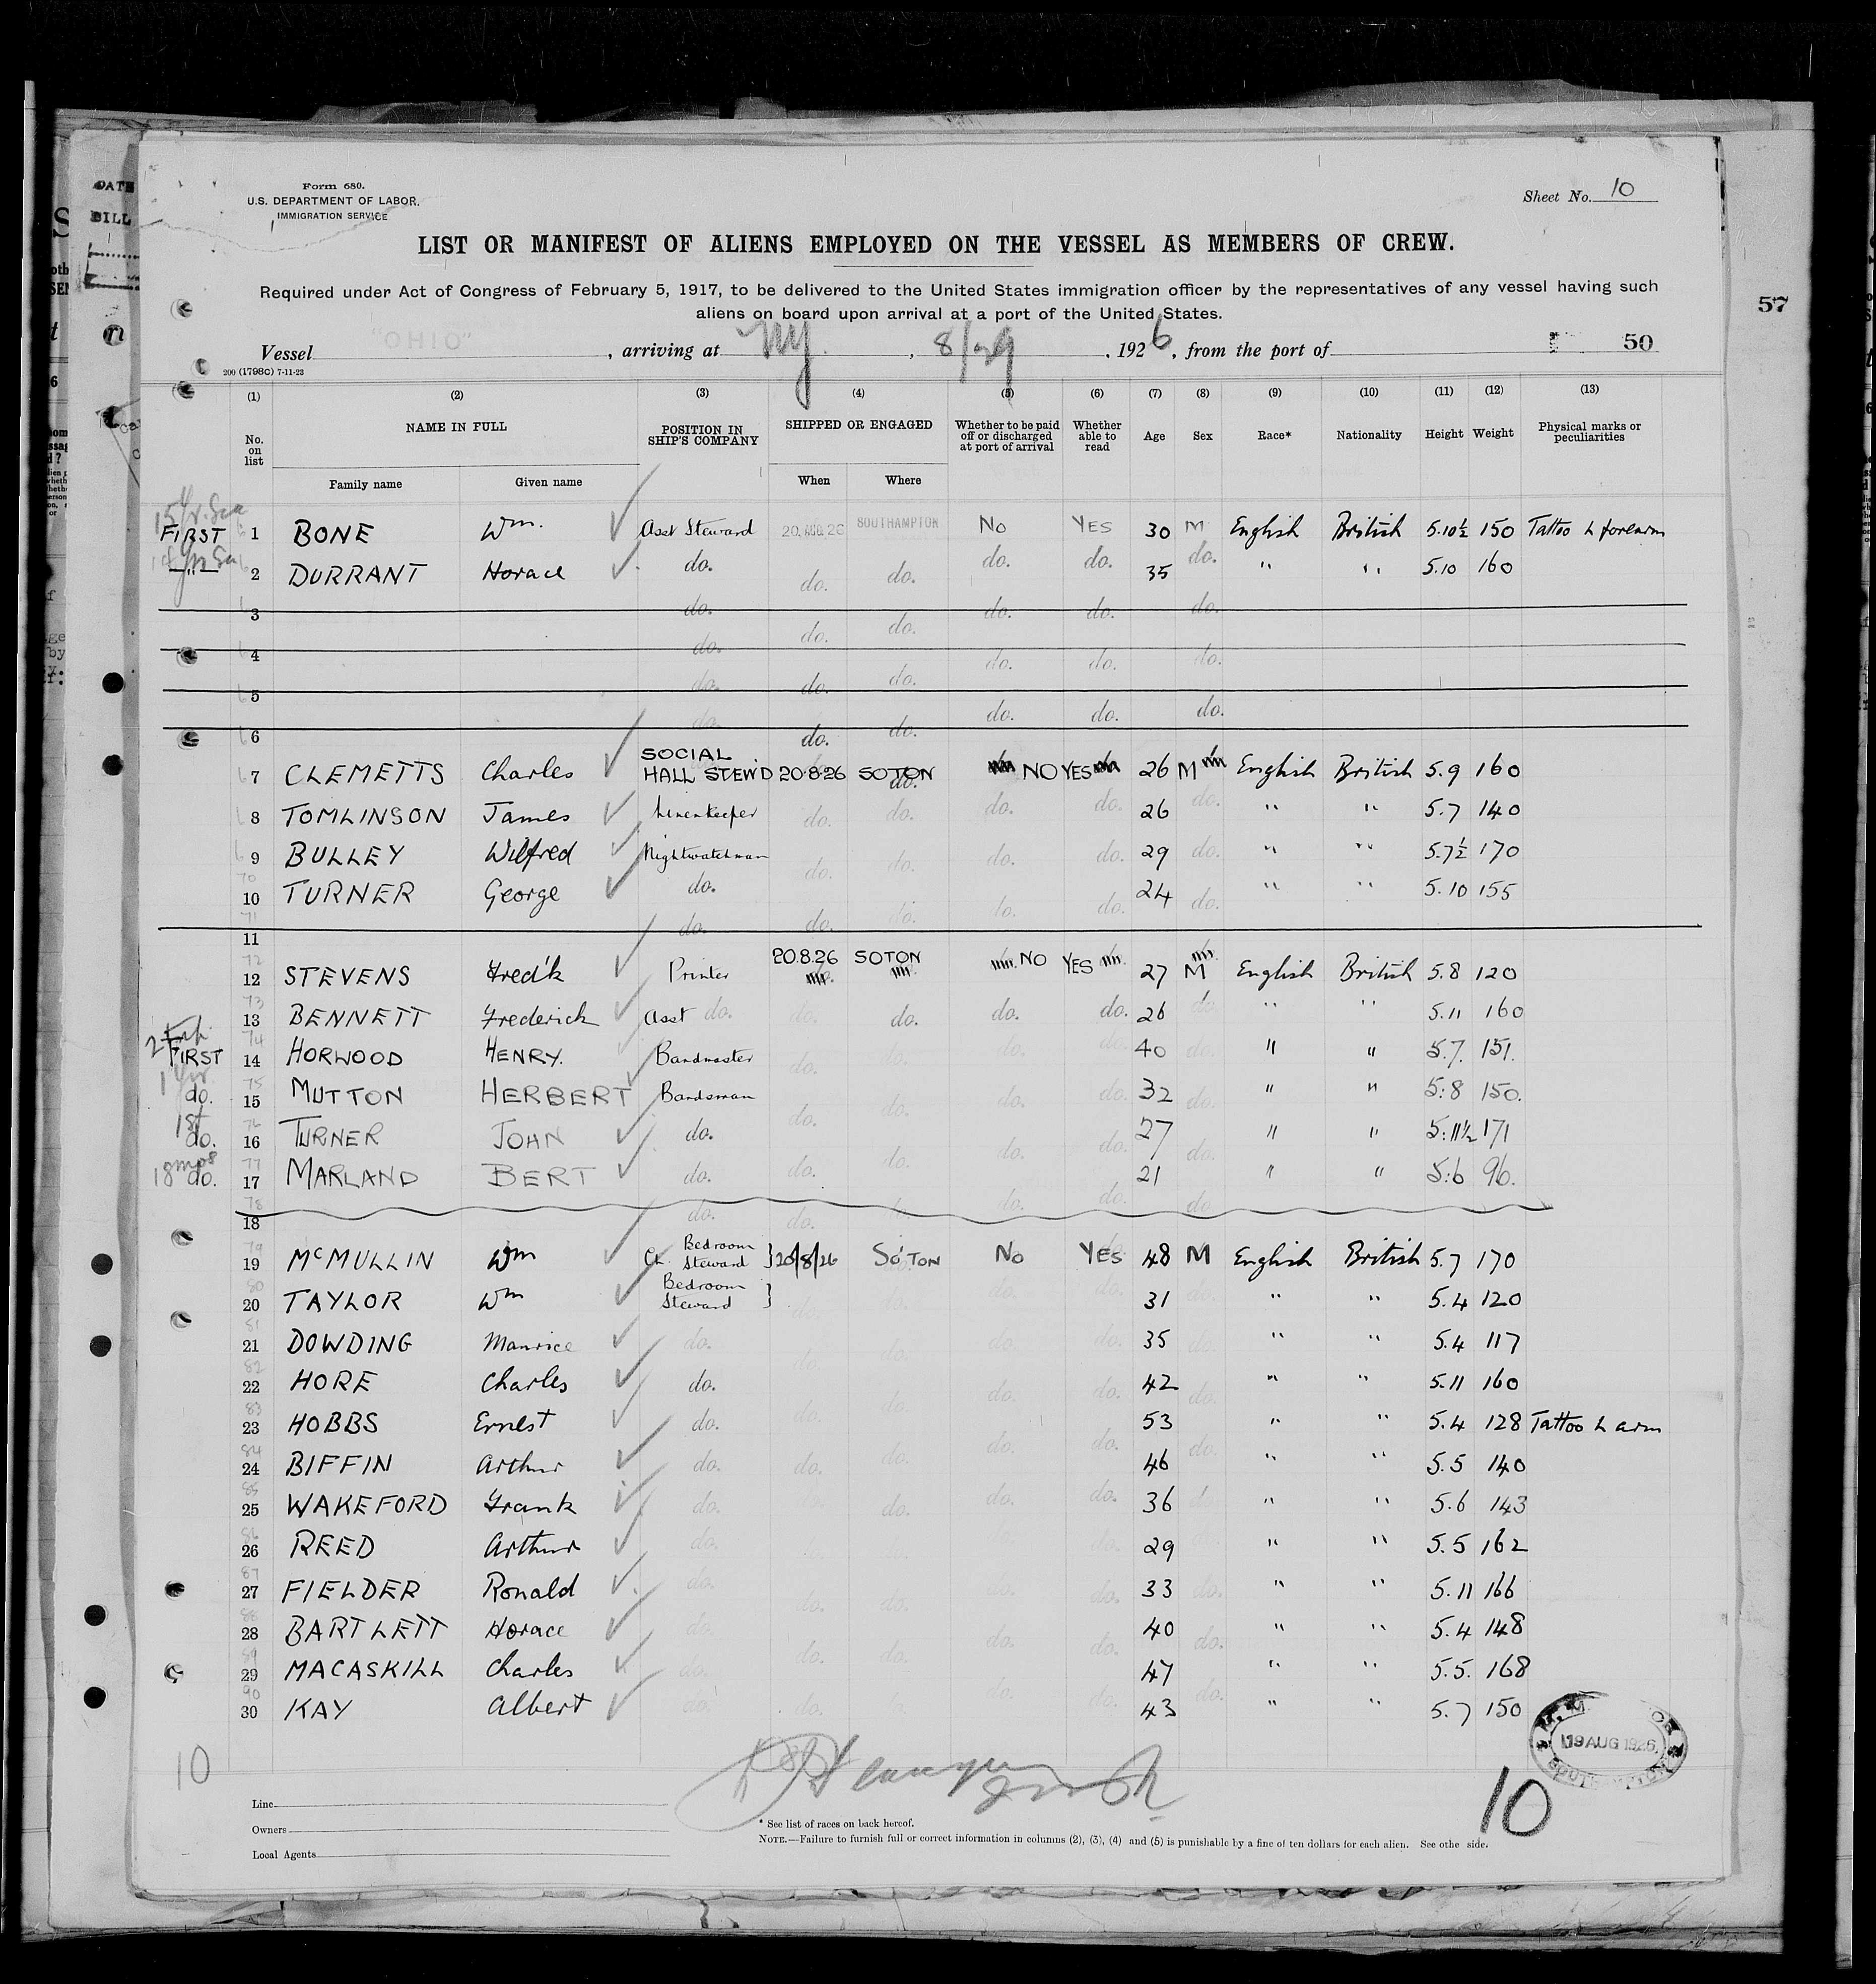 Form 680.
U.S. DEPARTMENT OF LABOR.
IMMIGRATION SERVICE
Sheet No. 10
LIST OR MANIFEST OF ALIENS EMPLOYED ON THE VESSEL AS MEMBERS OF CREW.
Required under Act of Congress of February 5, 1917, to be delivered to the United States immigration officer by the representatives of any vessel having such
aliens on board upon arrival at a port of the United States.
57
Vessel "OHIO", arriving at NY, 8/29, 1926, from the port of 50
200 (1798C) 7-11-23
(1) (2) (3) (4) (5) (6) (7) (8) (9) (10) (11) (12) (13)
No. on list NAME IN FULL POSITION IN SHIP'S COMPANY SHIPPED OR ENGAGED Whether to be paid off or discharged at port of arrival Whether able to read Age Sex Race* Nationality Height Weight Physical marks or peculiarities
Family name Given name When Where
FIRST 1 BONE Wm. Asst Steward 20 AUG 26 SOUTHAMPTON No YES 30 M English British 5.10½ 150 Tattoo L forearm
—"— 2 DURRANT Horace do. do. do. do. do. 35 do. " " 5.10 160
3 do. do. do. do. do. do.
4 do. do. do. do. do. do.
5 do. do. do. do. do. do.
6 do. do. do.
7 CLEMETTS Charles SOCIAL HALL STEW'D 20·8·26 SOTON NO YES 26 M English British 5.9 160
8 TOMLINSON James Linenkeeper do. do. do. do. 26 do. " " 5.7 140
9 BULLEY Wilfred Nightwatchman do. do. do. do. 29 do. " " 5.7½ 170
10 TURNER George do. do. do. do. do. 24 do. " " 5.10 155
11 do. do.
12 STEVENS Fred'k Printer 20.8.26 SOTON NO YES 27 M English British 5.8 120
13 BENNETT Frederick Asst do. do. do. do. do. 26 do. " " 5.11 160
FIRST 14 HORWOOD HENRY. Bandmaster do. do. do. 40 do. " " 5.7. 151.
do. 15 MUTTON HERBERT Bandsman do. do. do. 32 do. " " 5:8 150.
1st do. 16 TURNER JOHN do. do. do. do. do. 27 do. " " 5:11½ 171
18 mos do. 17 MARLAND BERT do. do. do. do. do. 21 " " 5:6 96.
18 do. do. do. do. do.
19 McMULLIN Wm Ch. Bedroom Steward 20/8/26 So'TON No YES 48 M English British 5.7 170
20 TAYLOR Wm Bedroom Steward do. do. do. do. 31 do. " " 5.4 120
21 DOWDING Maurice do. do. do. do. do. 35 do. " " 5.4 117
22 HORE Charles do. do. do. do. do. 42 do. " " 5.11 160
23 HOBBS Ernest do. do. do. do. do. 53 " " 5.4 128 Tattoo L arm
24 BIFFIN Arthur do. do. do. do. do. 46 do. " " 5.5 140
25 WAKEFORD Frank do. do. do. do. 36 " " 5.6 143
26 REED Arthur do. do. do. 29 " " 5.5 162
27 FIELDER Ronald do. do. do. do. do. 33 do. " " 5.11 166
28 BARTLETT Horace do. do. do. 40 do. " " 5.4 148
29 MACASKILL Charles do. do. do. 47 " " 5.5. 168
30 KAY Albert do. do. do. do. 43 do. " " 5.7 150
19 AUG 1926
10
10
Line
Owners
Local Agents
* See list of races on back hereof.
NOTE.—Failure to furnish full or correct information in columns (2), (3), (4) and (5) is punishable by a fine of ten dollars for each alien. See othe side.